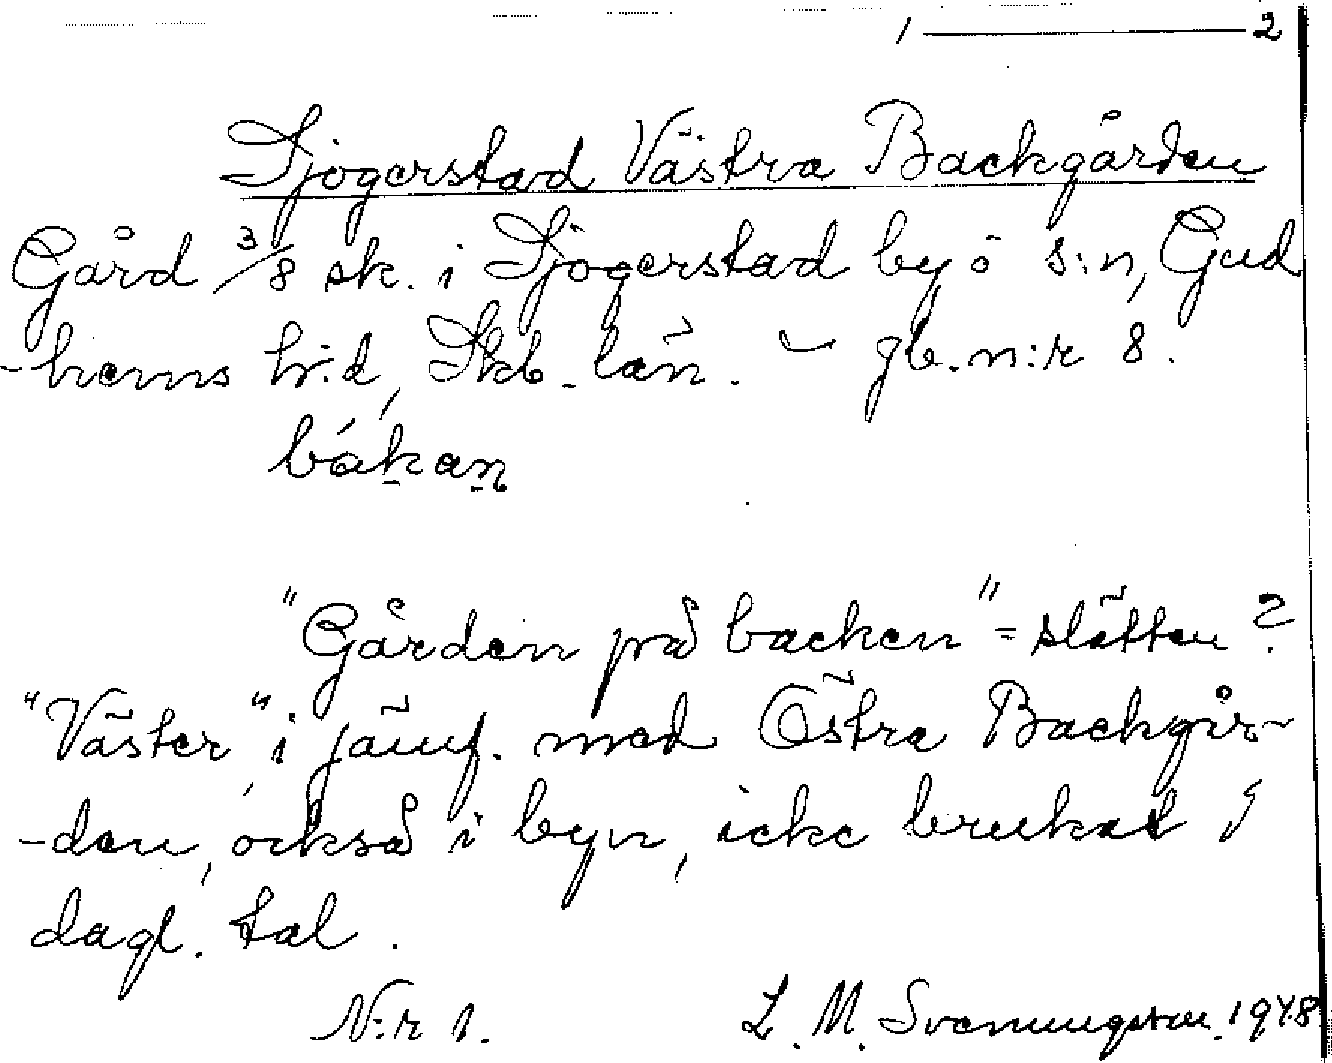 1 — 2
Sjogerstad Västra Backgården
Gård 3/8 sk. i Sjogerstad by o s:n, Gud
-hems h:d, Skb. län. gb. n:r 8.
bákan
"Gården på backen" = slätten?
"Väster" i jämf. med Östra Backgår-
-den, också i byn, icke brukat i
dagl. tal.
N:r 1. L. M. Svenungsson. 1948